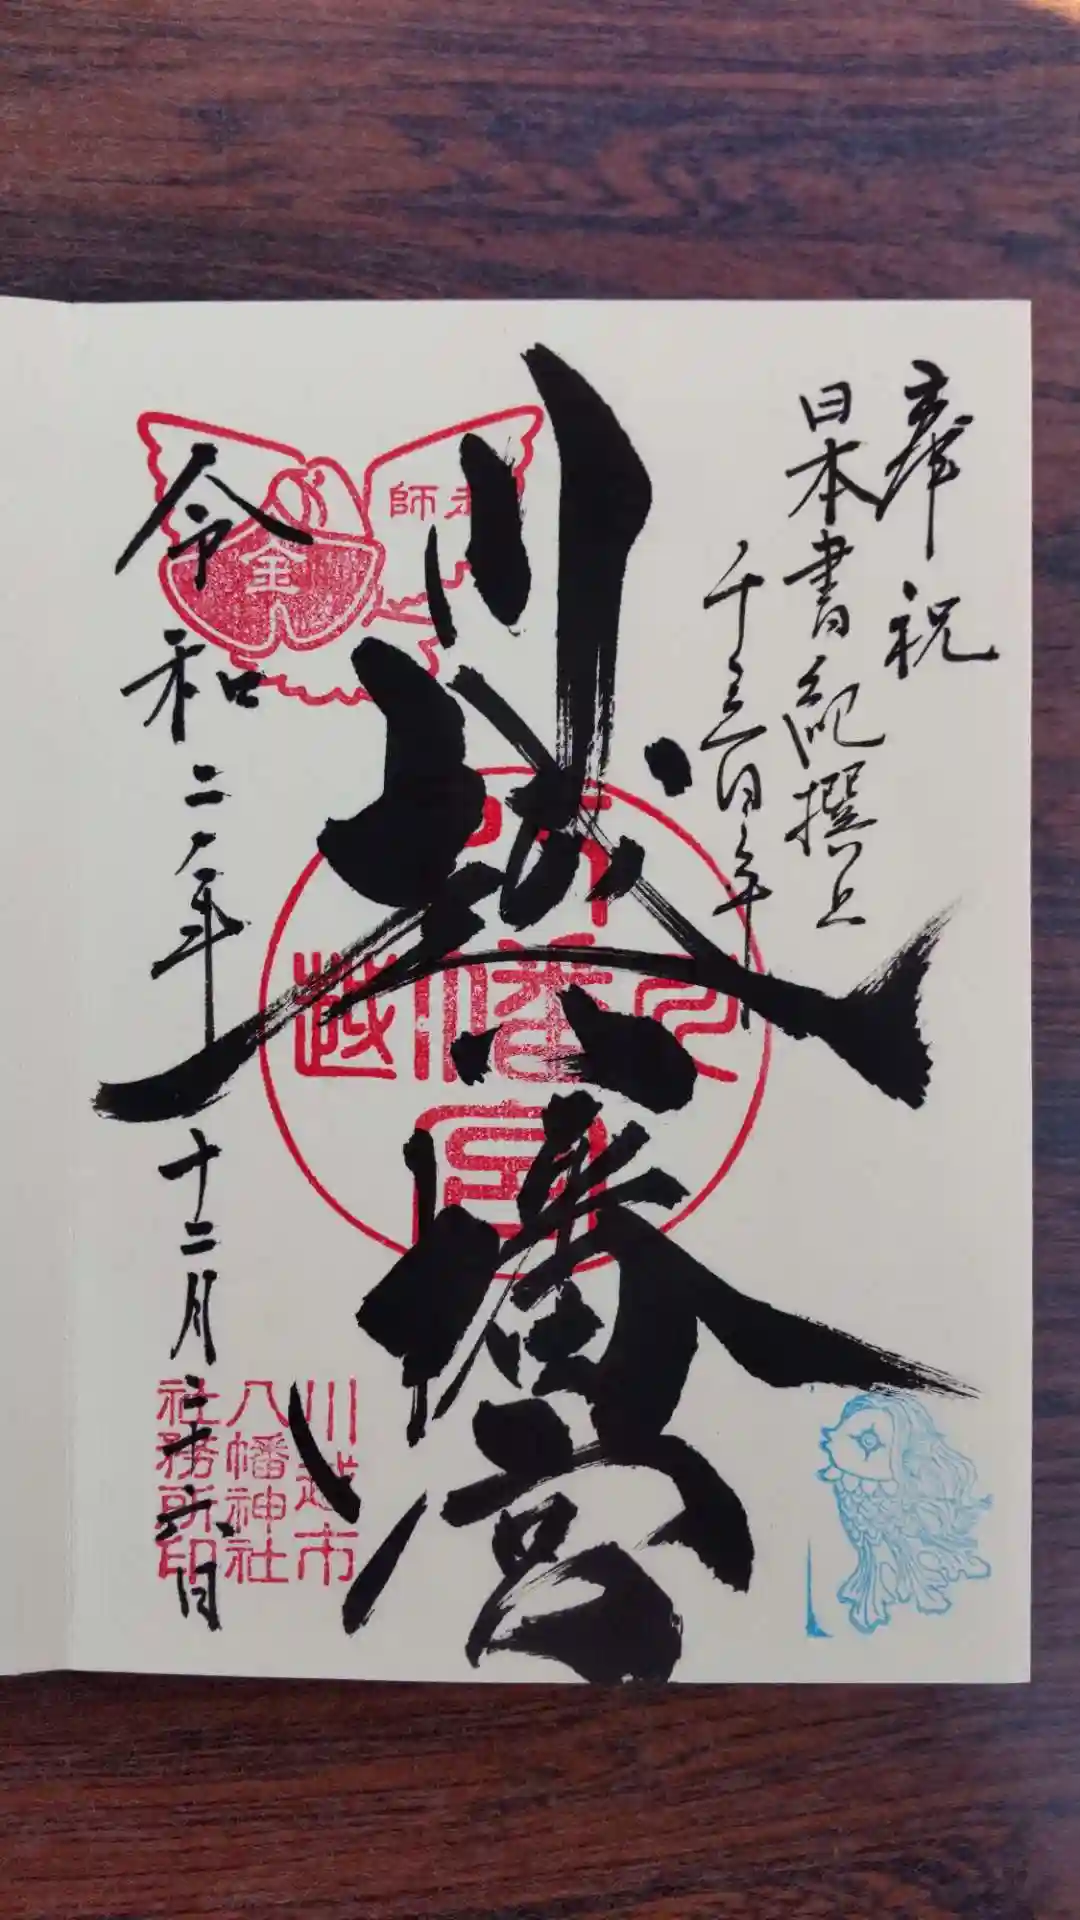 奉祝
日本書紀撰上
千三百年
川越八幡宮
川越
八幡宮
金
師
令和二年十二月二十六日
川越市
八幡神社
社務所印